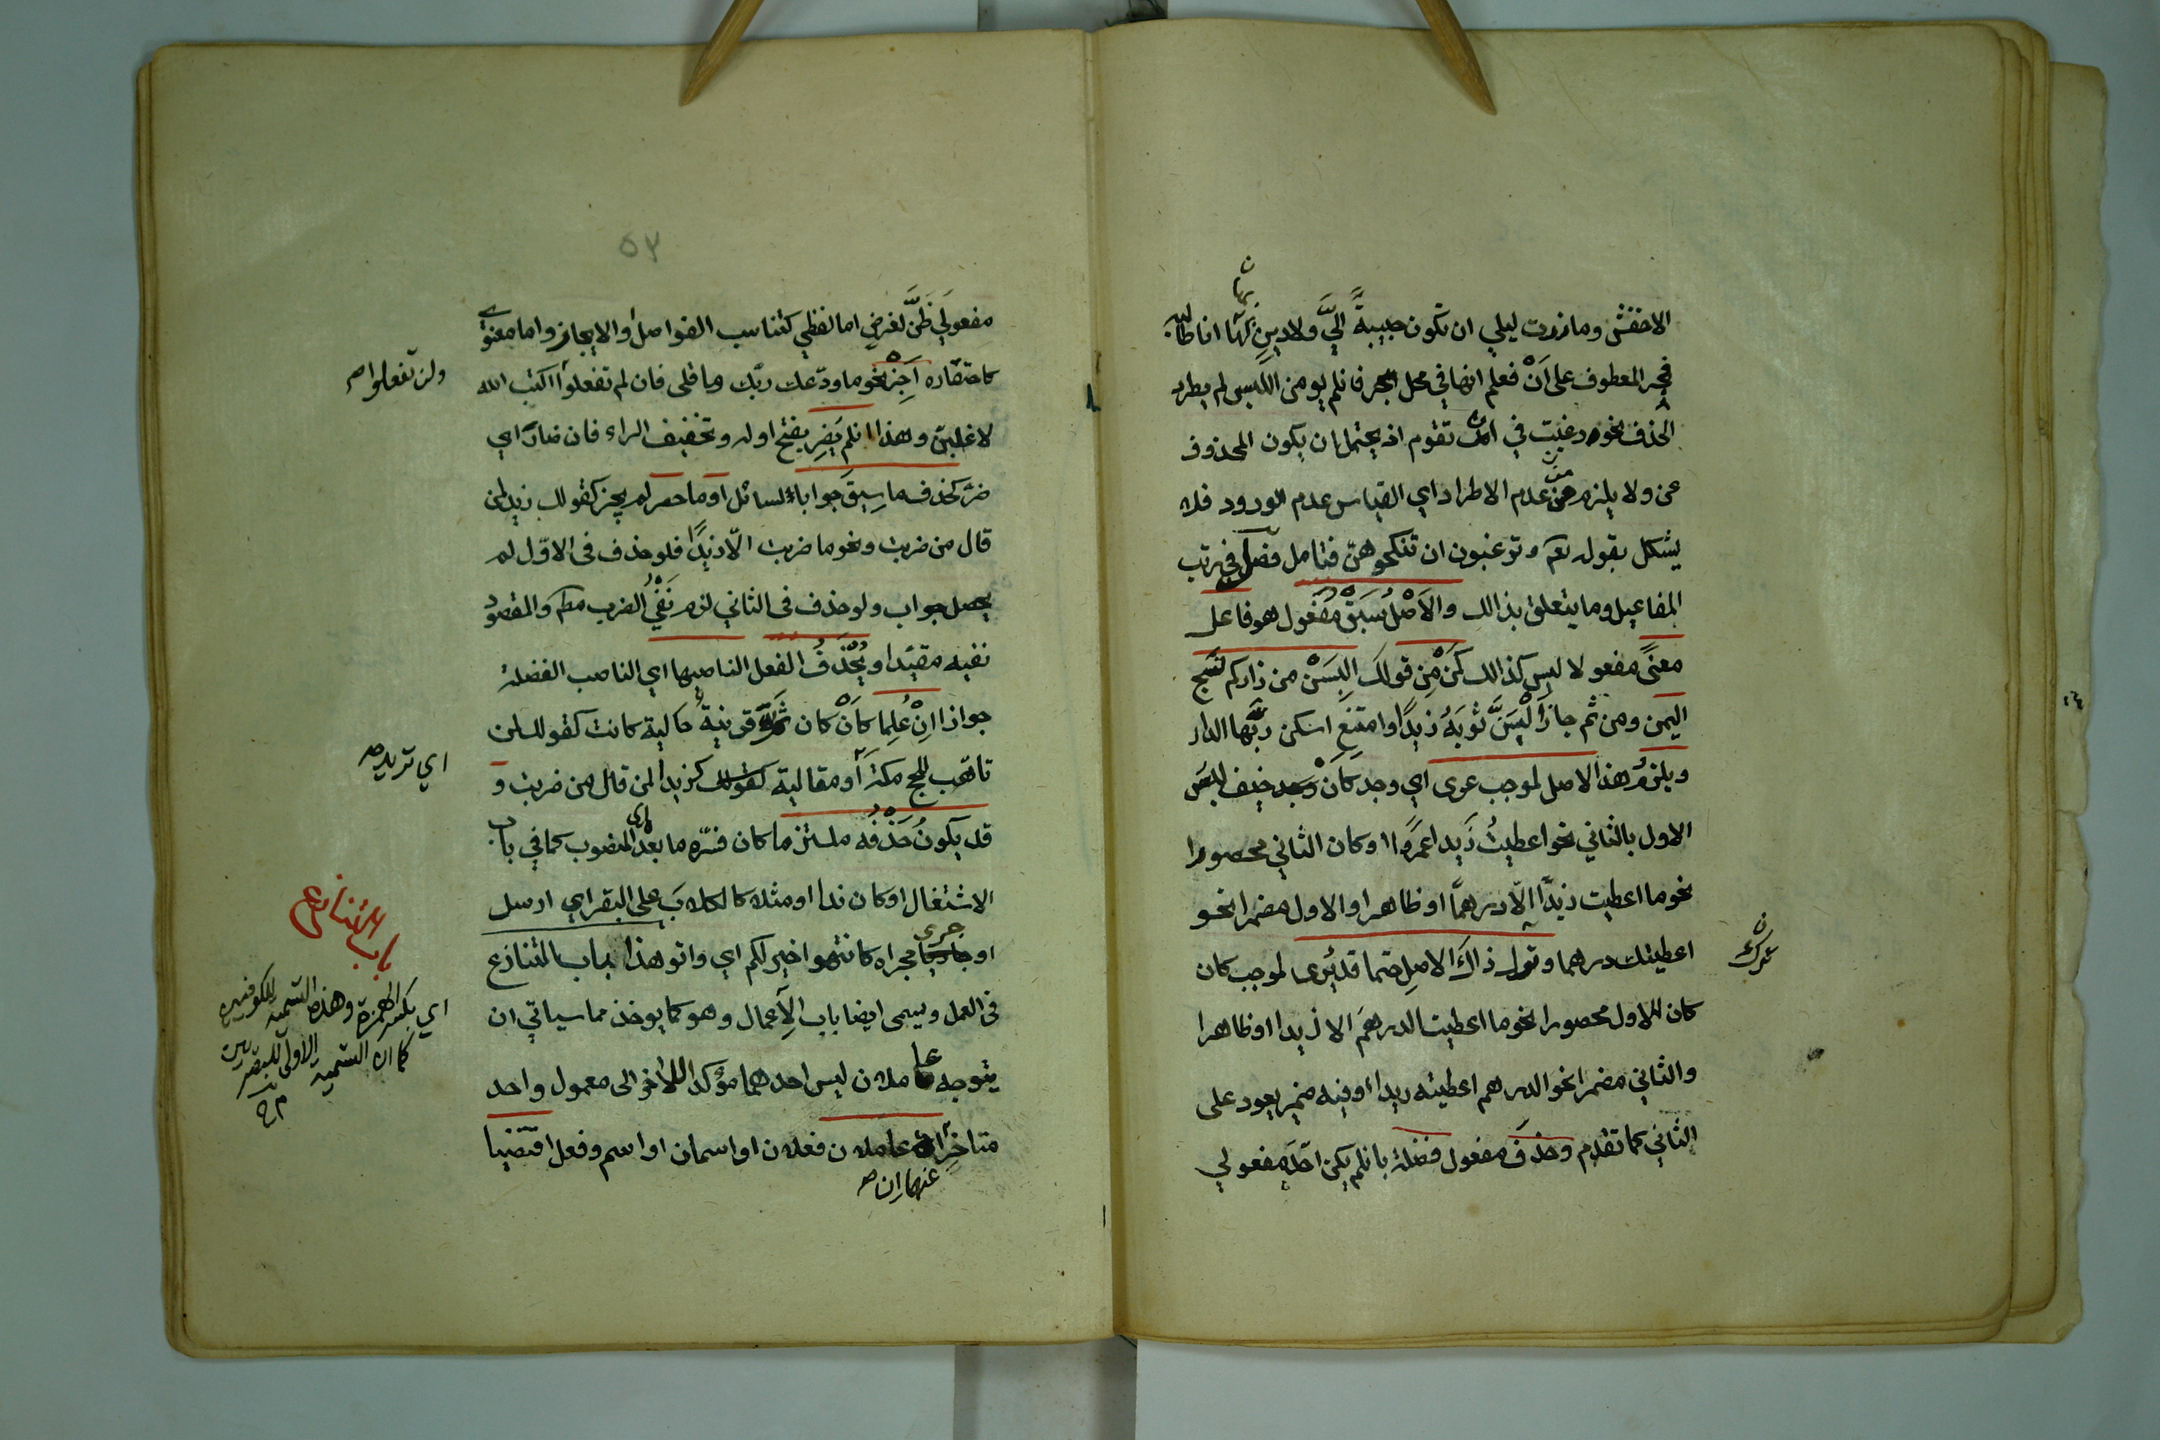 الاخفش وما زرت ليلي ان تكون حبيبةً اليَّ ولا دينٍ بها انا طالبه
بها ن
فجر المعطوف على اَنْ فعلم انها في محل الجر فانلم يومن اللبس لم يطرد
الحذف نحو رغبت في انك تقوم اذ يحتمل ان يكون المحذوف
عن ولا يلزم من عدم الاطراد اي القياس عدم الورود فلا
يشكل بقوله تعم وترغبون ان تنكحوهن فتامل فصل في رتب
المفاعيل وما يتعلق بذالك والاَصْلُ سَبَقْ مفعول هو فاعل
معنىً مفعولا ليس كذالك كَمَنْ مِن قولك البسَنْ من زاركم نسج
اليمن ومن ثم جاز اَلْبِسَنَّ ثوبَهُ زيدًا وامتنع اسكن ربُّها الدار
ويلزمُ هذا الاصل لموجب عرى اي وجد كاَنْ خيف لبس
الاول بالثاني نحو اعطيتُ زَيدا عمرًا او كان الثاني محصورا
نحو ما اعطيت زيدًا الّا درهمًا او ظاهرا والاول مضمرا نحو
اعطيتك درهما وترك ذاكَ الاصلِ حتما قد يُرى لموجب كان
ترك ن
كان الاول محصورا نحو ما اعطيت الدرهمَ الا زيدا او ظاهرا
والثاني مضمرا نحو الدرهم اعطيته زيدا او فيه ضمير يعود على
الثاني كما تقدم وحذفَ مفعول فضلة بانلم يكن احَدَ مفعولي
٥٢
مفعولَي ظَنَّ لغرضٍ اما لفظي كتناسب الفواصل والايجاز واما معنوي
كاحتقاره اَجِزْ نحو ما ودّعك ربّك وما قلى فان لم تفعلوا اكتب الله
ولن تفعلوا صح
لاغلبن وهذا انلم يَضِرِ بفتح اوله وتخفيف الراء فان ضار اي
ضرّ كحذف ما سِيقَ جوابا لسائل او ما حصر لم يجز كقولك زيد لمن
قال من ضربت ونحو ما ضربت الّا زيدًا فلو حذف في الاوّل لم
يحصل جواب ولو حذف في الثاني لزم نَفْيُ الضرب مطم والمقصود
نفيه مقيّدا ويُحْذَفُ الفعل الناصبها اي الناصب الفضلة
جوازا اِنْ عُلِما كاَنْ كان ثَمَّ قرينة حالية كانت كقولك لمن
تاهّب للحج مكةَ او مقالية كزيدا لمن قال من ضربت و
اي تريد صح
قد يكونُ حَذْفُه ملتزما كان فسّره ما بعد المنصوب كما في باب
الاشتغال او كان ندا او مثلا كالكلابَ على البقر اي ارسل
او جرى مجراه كانتهوا خيرا لكم اي واتو هذا باب التنازع
باب التنازع
في العمل ويسمى ايضا باب الاِعمال وهو كما يوخذ مما سياتي ان
اي بكسر الهمزة وهذه التسمية للكوفيين
كما ان التسمية الاولى للبصريين
يتوجه عاملان ليس احدهما مؤكدا للاخر الى معمول واحد
متاخر عاملان فعلان او اسمان او اسم وفعل اقتضيا
عنهما ان صح